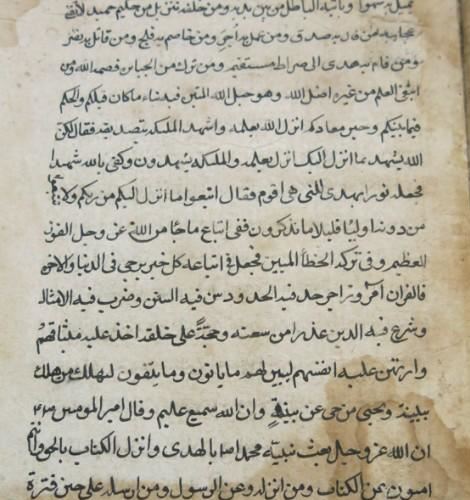 تحيل بسموا ويأتيه الباطل من بين يديه ومن خلفه تنزيل من حكيم حميد لا تفنى
عجايبه من قال به صدق ومن عمل به اجر ومن خاصم به فلج ومن قاتل به نصر
ومن قام به هدى الى صراط مستقيم ومن تركه من الجبابرة قصمه الله ومن
ابتغى العلم من غيره اضل الله وهو حبل الله المتين فيه نباء ماكان قبلكم والحكم
فيما بينكم وخبر معادكم انزل الله بعلمه واشهد الملئكة بتصديقه فقال لكن
الله يشهد بما انزل اليك انزله بعلمه والملئكة يشهدون وكفى بالله شهيدا
فجعله نورا يهدى للتى هى اقوم فقال اتبعوا ما انزل اليكم من ربكم ولا تتبعوا
من دونه اولياء قليلا ما تذكرون ففى اتباع ما جاء من الله عز وجل الفوز
العظيم وفى تركه الخطأ المبين فجعل فى اتباعه كل خير يرجى فى الدنيا والاخرة
فالقران آمر وزاجر حد فيه الحدود وسن فيه السنن وضرب فيه الامثال
وشرع فيه الدين عذرا من سعته وحجة على خلقه اخذ عليه ميثاقهم
وارتهن عليه انفسهم ليبين لهم ما ياتون وما يتقون ليهلك من هلك
عن بينة ويحيى من حى عن بينة وان الله سميع عليم وقال امير المومنين
ان الله عز وجل بعث نبيه محمدا بالهدى وانزل الكتاب بالحق وانتم
اميون عن الكتاب ومن انزله وعن الرسول ومن ارسله على حين فترة